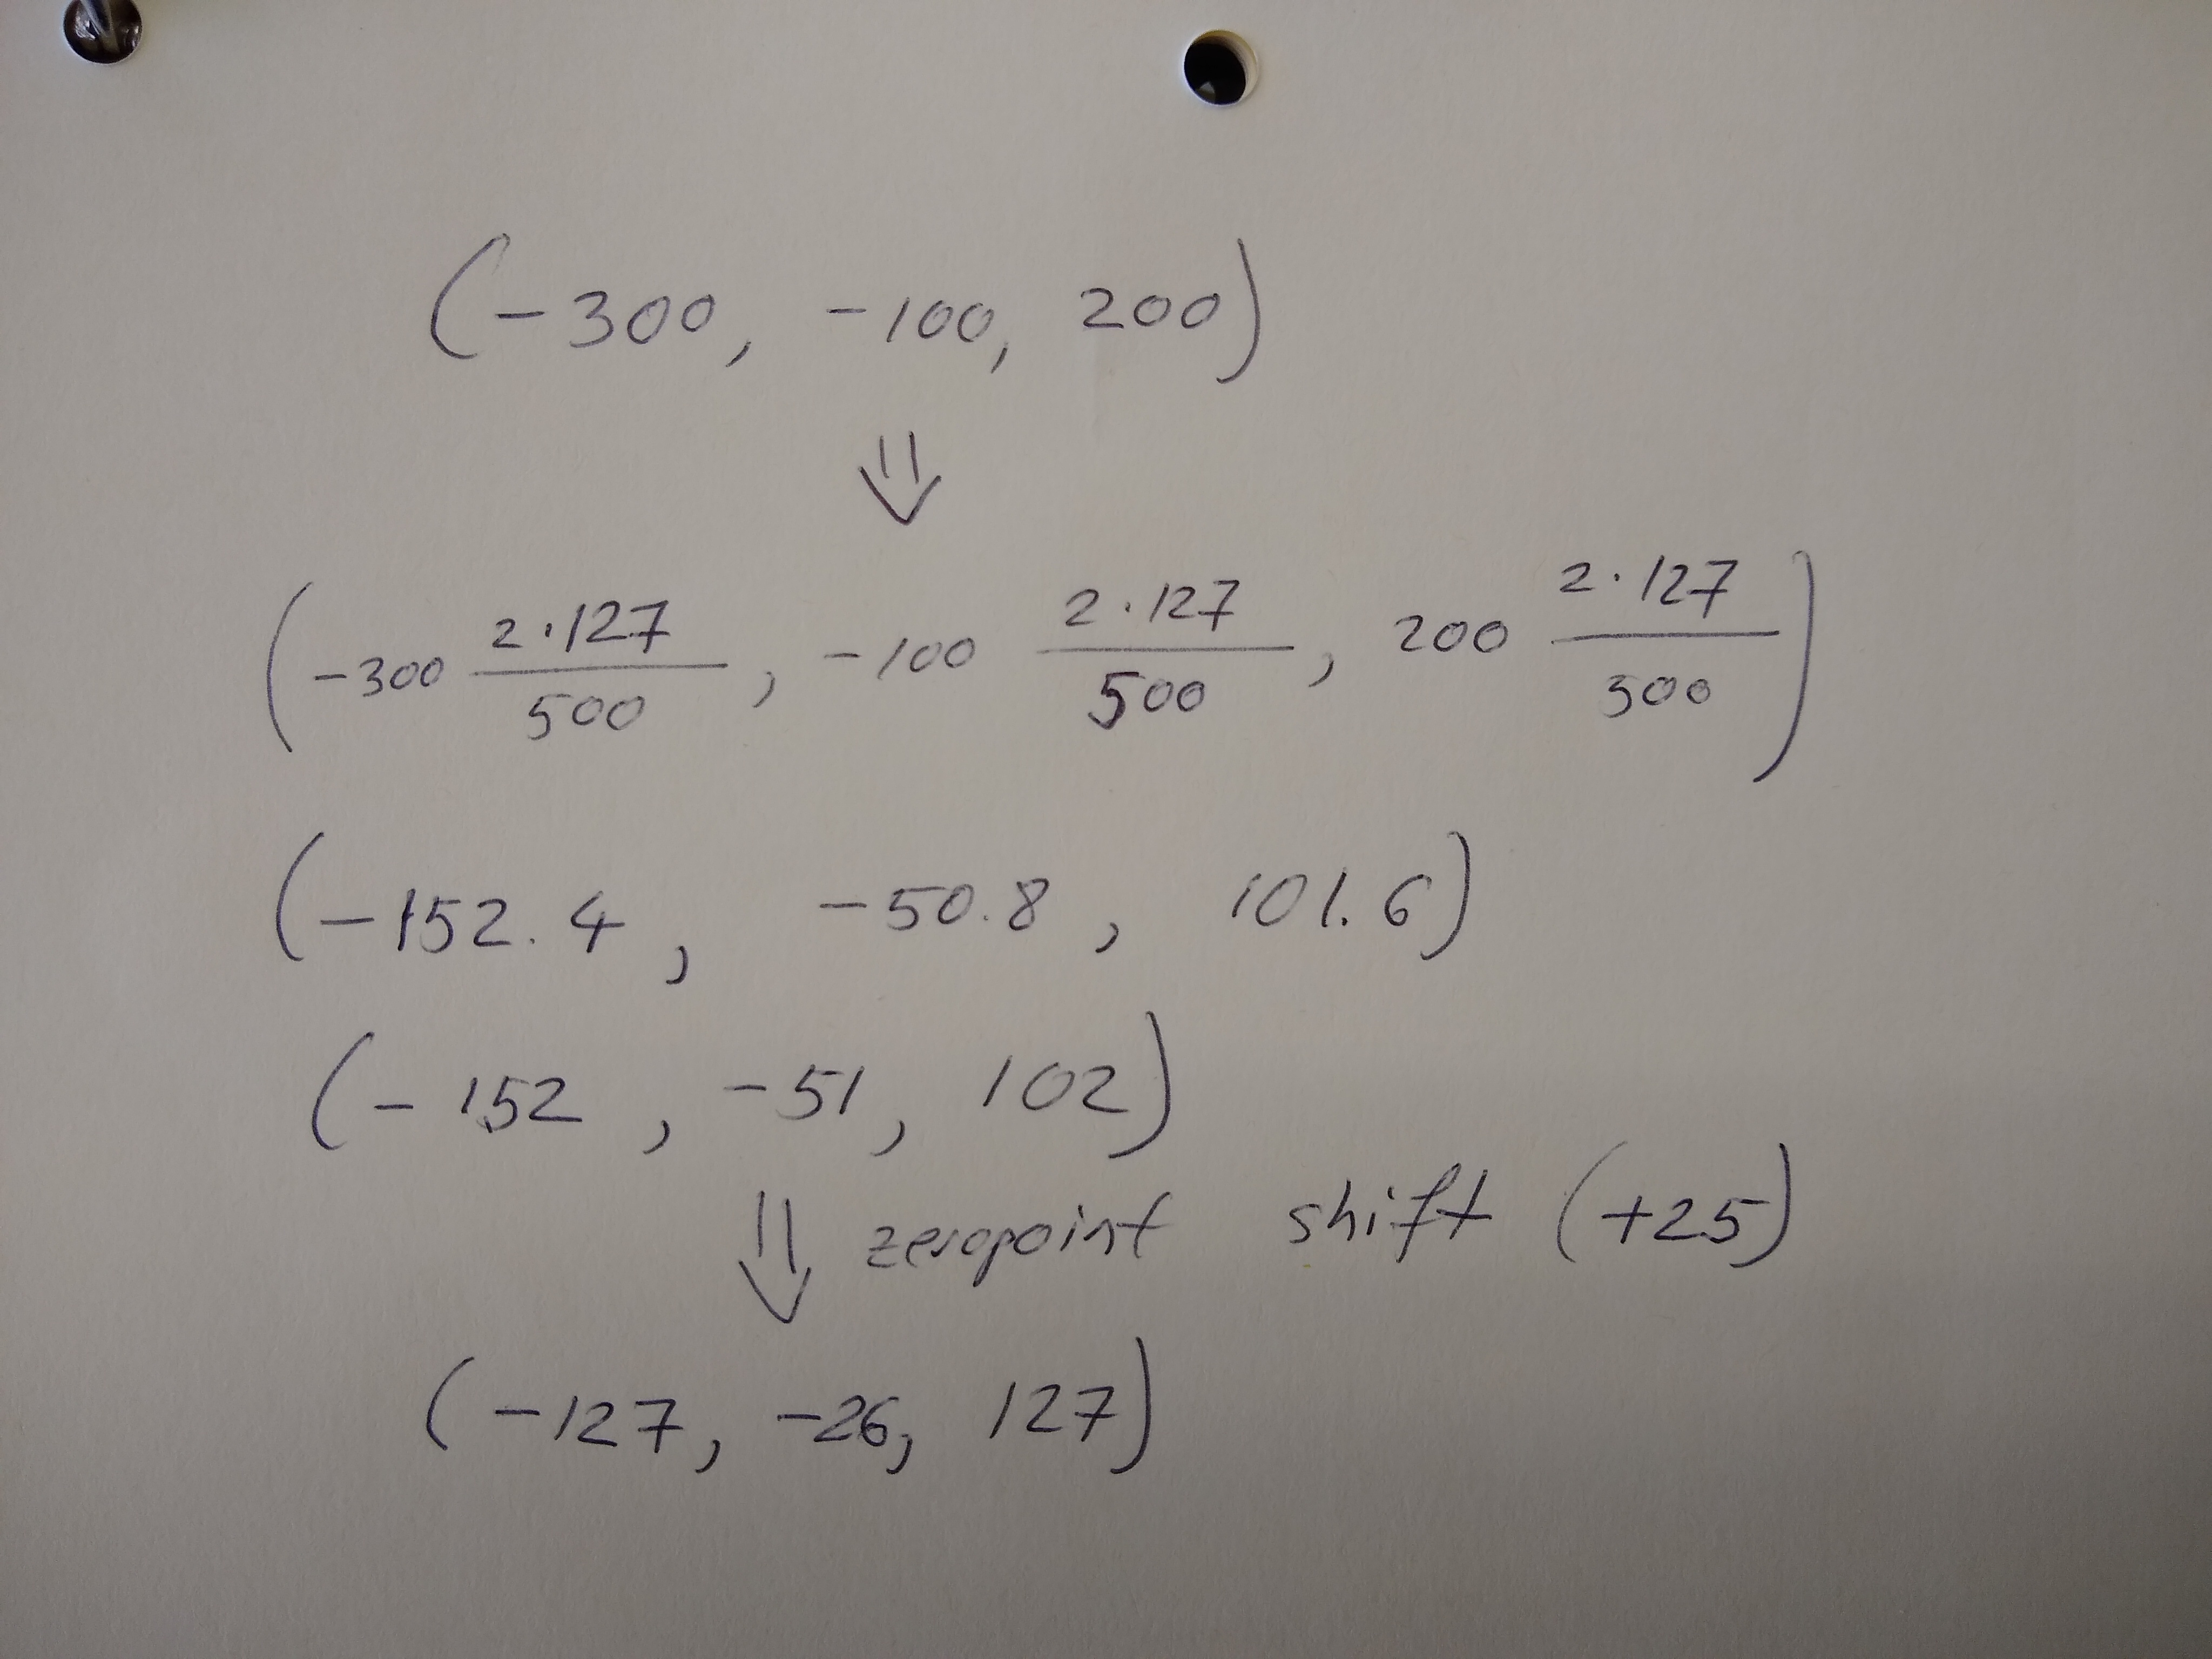 (-300, -100, 200)
⇓
(-300 2·127/500, -100 2·127/500, 200 2·127/500)
(-152.4, -50.8, 101.6)
(-152, -51, 102)
⇓ zeropoint shift (+25)
(-127, -26, 127)